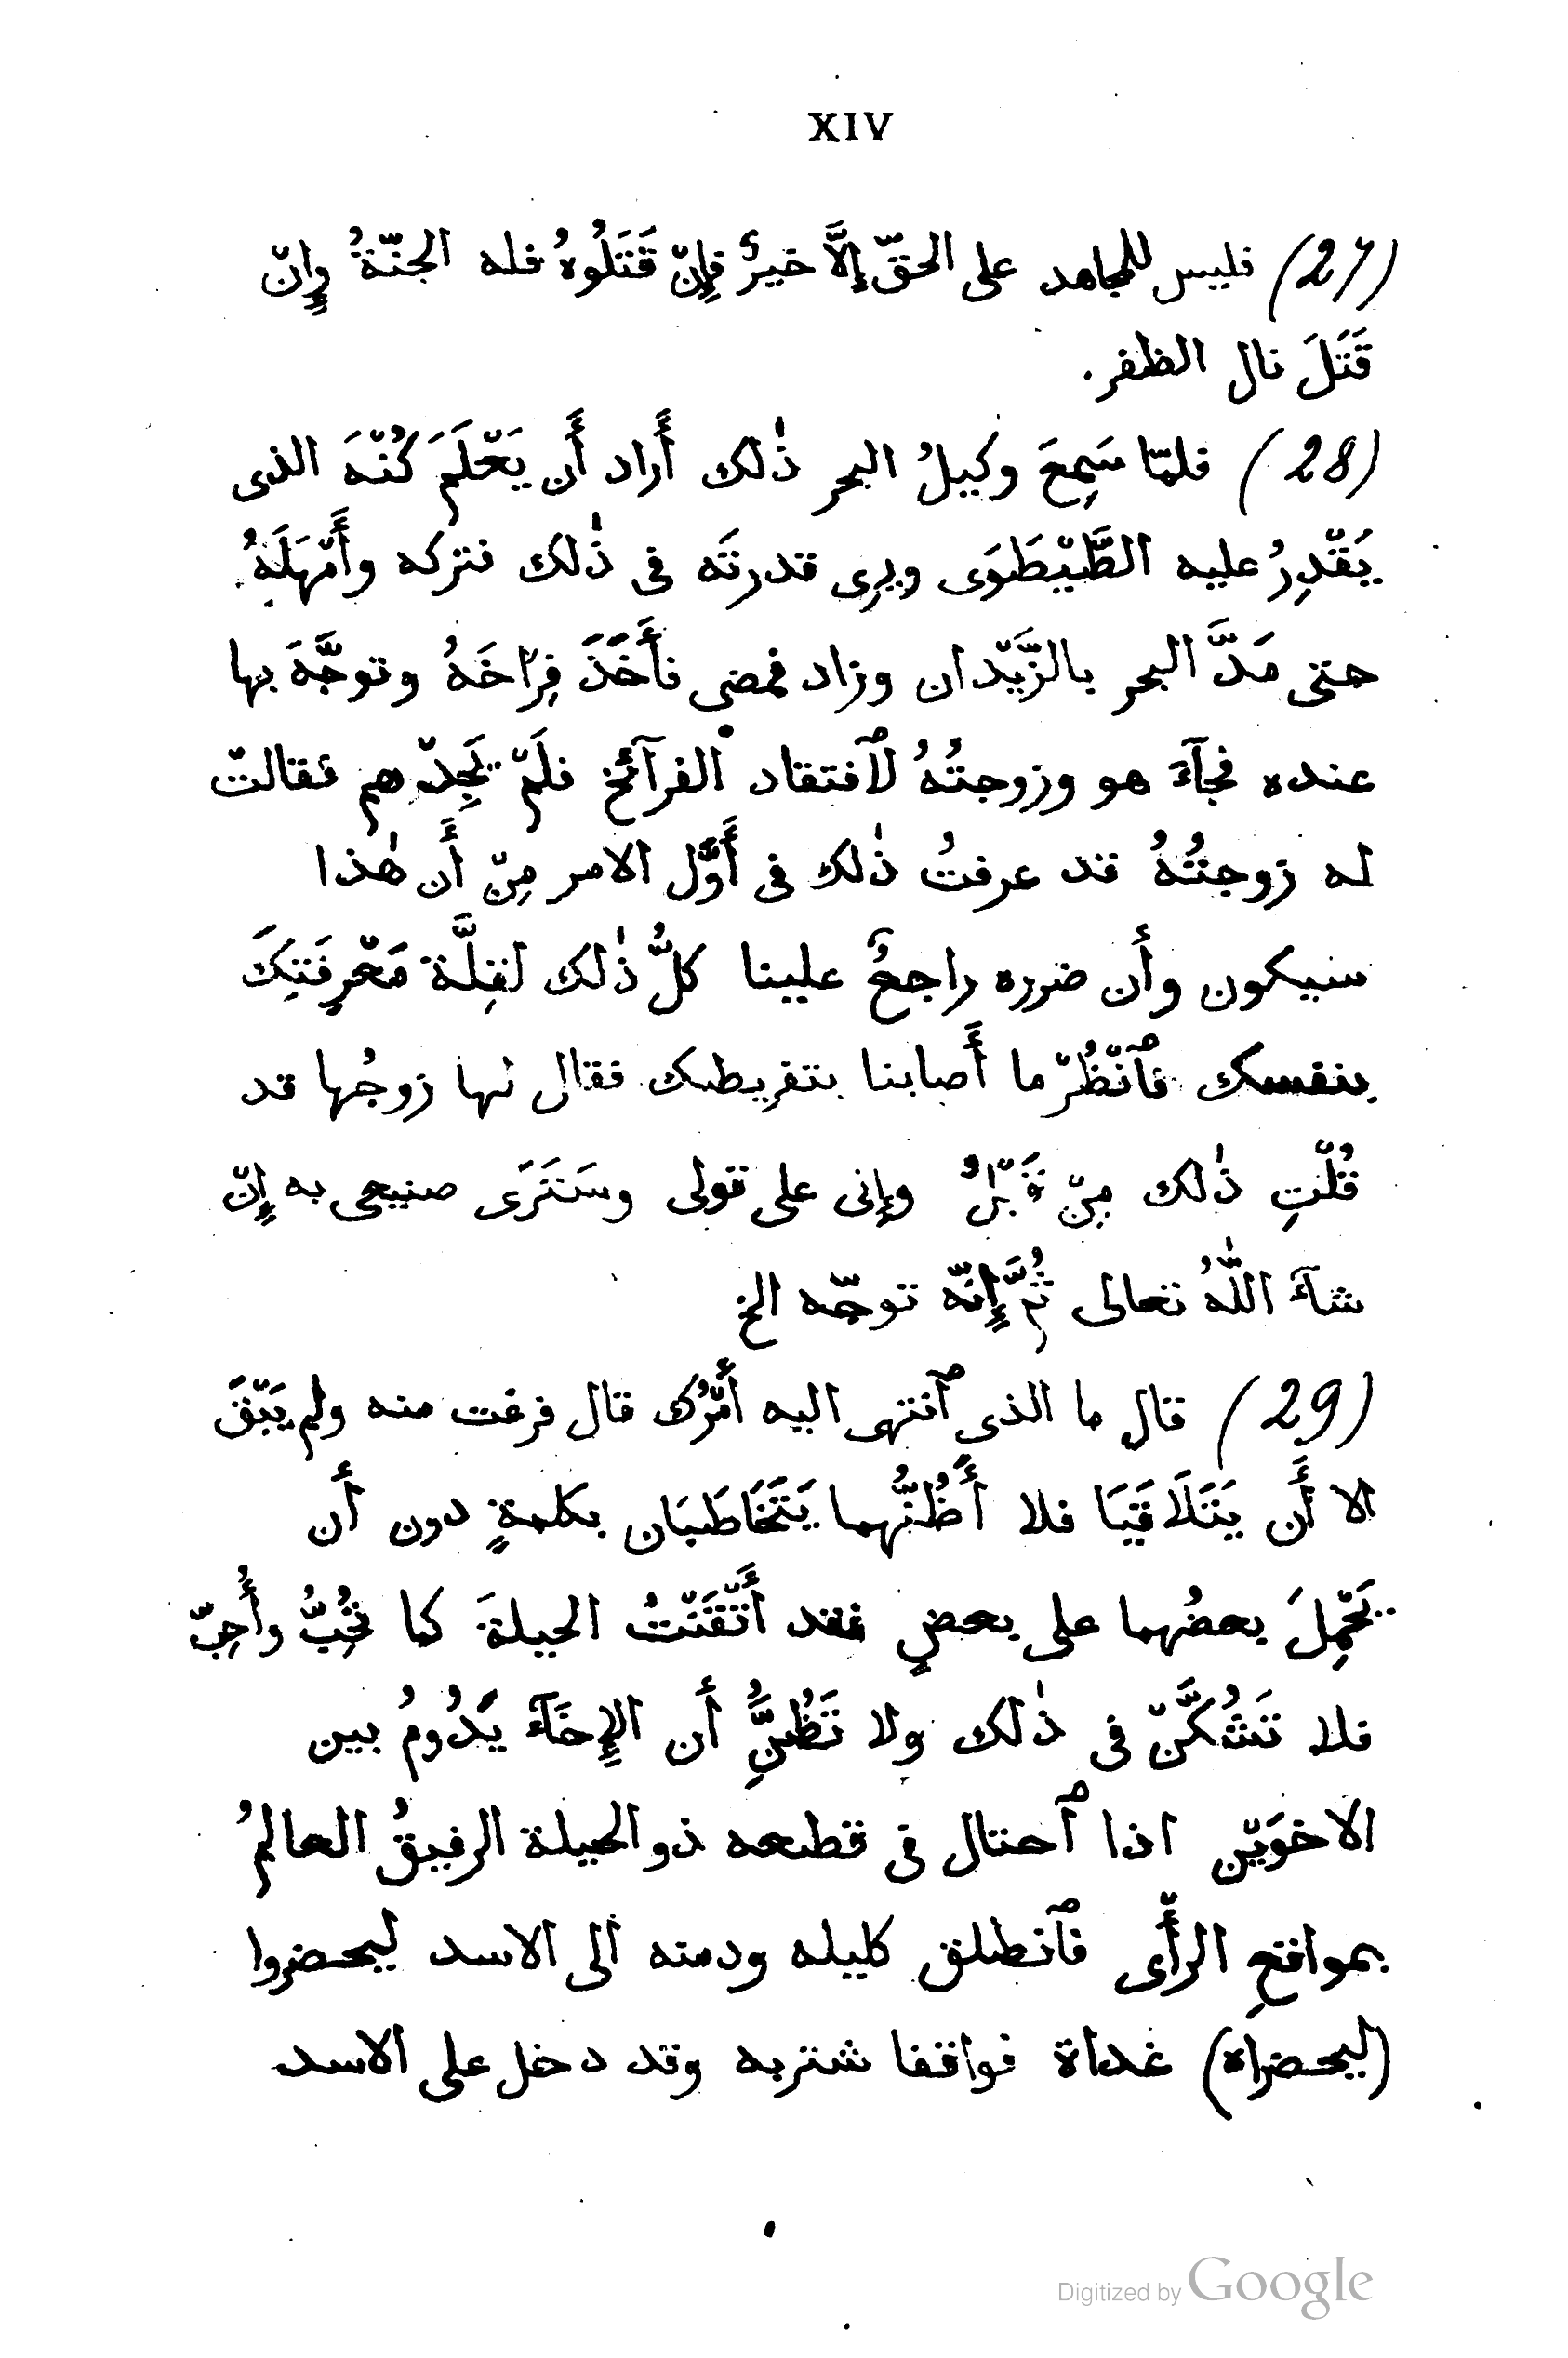 XIV
(27) فليس للمجاهد على الحقّ إلَّا خيرٌ فإنْ قَتَلُوهُ فله الجنّةُ وإنْ
قَتَلَ نال الظفر.
(28) فلمّا سَمِعَ وكيلُ البحر ذٰلك أَراد أَن يَعْلَمَ كُنْهَ الذى
يَقْدِرُ عليه الطَّيْطَوَى ويرى قدرتَه فى ذٰلك فتركه وأَمْهَلَهُ
حتى مَدَّ البحر بالزَّيْدان وزاد فمضى فأَخَذَ فِرَاخَهُ وتوجَّهَ بها
عنده فجآءَ هو وزوجتُهُ لٱفتقاد الفرآئخ فلَمْ يَجِدْهم فقالتْ
له زوجتُهُ قد عرفتُ ذٰلك فى أَوَّل الامر مِنْ أَن هٰذا
سيكون وأَن ضرره راجعٌ علينا كلُّ ذٰلك لقِلَّة مَعْرِفَتِكَ
بنفسك فٱنْظُرْ ما أَصابنا بتفريطك فقال لها زوجُها قد
قُلْتِ ذٰلك مِنْ قَبْلُ وإنى على قولى وسَتَرَى صنيعى به إنْ
شآءَ اللّٰهُ تعالى ثُمَّ إِنّه توجّه الخ
(29) قال ما الذى ٱنتهى اليه أَمْرُك قال فرغت منه ولم يَبْقَ
الا أَن يَتَلَاقَيَا فلا أَظُنُّهما يَتَخَاطَبَان بكلمةٍ دون أَن
يَحْمِلَ بعضُهما على بعضٍ فقد أَتْقَنْتُ الحيلةَ كما تُحِبُّ وأُحِبّ
فلا تَشُكَّنْ فى ذٰلك ولا تَظُنَّ أَن الإِخآءَ يَدُومُ بين
الاخوَيْن اذا ٱحتال فى قطعه ذو الحيلة الرفيقُ العالمُ
بمواقعِ الرأْى فٱنطلق كليله ودمنه الى الاسد ليحضروا
(ليحضراه) غداة فواقفا شتربه وقد دخل على الاسد
Digitized by Google